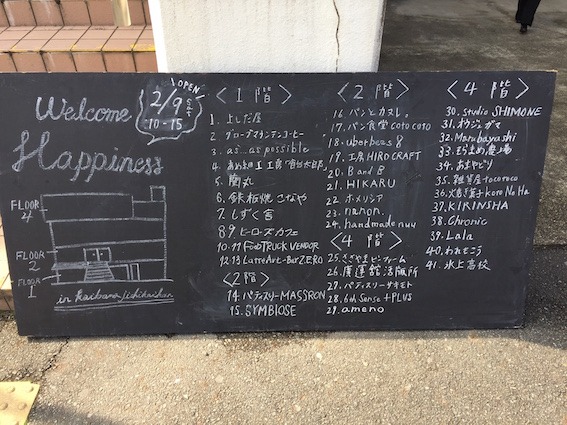 Welcome
Happiness
OPEN
2/9 Sat
10-15
FLOOR
4
FLOOR
2
FLOOR
1
in Kaibara
<1階>
1. よしだ屋
2. グローブマウンテンコーヒー
3. as...as possible
4.
5. 蘭丸
6. 鉄板焼 こなや
7. しずく舎
8.9 ヒーローズカフェ
10.11 FOODTRUCK VENDOR
12.13 LatteArt-Bar ZERO
<2階>
14. パティスリーMASSRON
15. SYMBIOSE
<2階>
16. パンとカヌレ。
17. パン食堂 cotocoto
18. uberbeus 8
19. 工房 HIRO CRAFT
20. B and B
21. HIKARU
22. ホメリシア
23. nanon.
24. handmade nuu
<4階>
25. ささやまビーファーム
26. 廣運館 活版所
27. パティスリーサキモト
28. 6th Sense + PLUS
29. ameno
<4階>
30. studio SHIMONE
31. オウジュガマ
32. Marubayashi
33.
34. あまやどり
35. 雑貨屋 tocoroco
36. 焼き菓子 koro Na Ha
37. KIRINSHA
38. Chronic
39. Lala
40. われもこう
41. 氷上高校